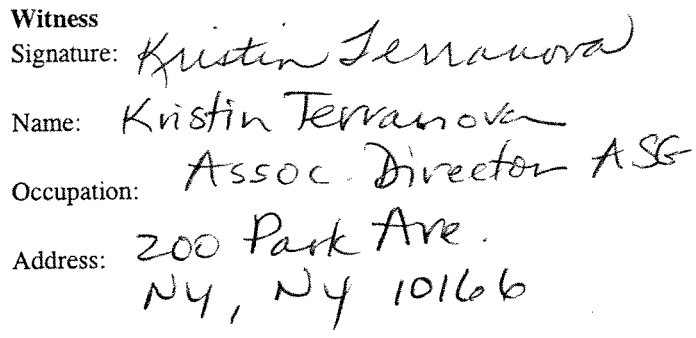 Witness
Signature: Kristin Terranova
Name: Kristin Terranova
Occupation: Assoc. Director ASG
Address: 200 Park Ave.
NY, NY 10166